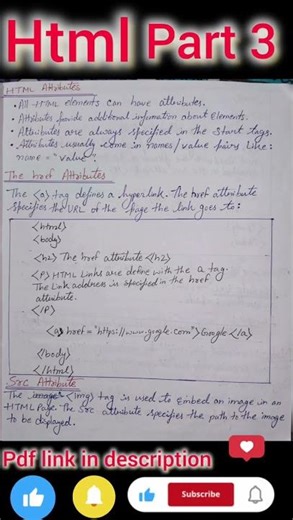 Html Part 3
HTML Attributes
• All HTML elements can have attributes.
• Attributes provide additional information about Elements.
• Attributes are always specified in the start tags.
• Attributes usually come in names/value pairs like:
name = "value".
The href Attributes
The <a> tag defines a hyperlink. The href attribute
specifies the URL of the page the link goes to:
<html>
<body>
<h2> The href attribute </h2>
<P> HTML Links are define with the a tag.
The link address is specified in the href
attribute.
</P>
<a> href = "https://www.google.com">Google </a>
</body>
</html>
Src Attribute
The image <img> tag is used to Embed an image in an
HTML Page. The Src attribute specifies the path to the image
to be displayed.
Pdf link in description
Subscribe